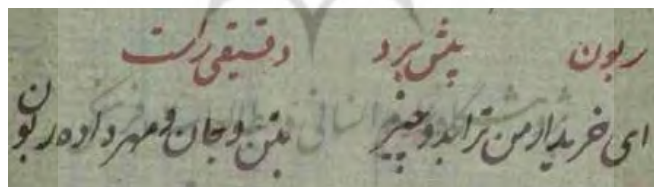 ربون پیش برد دقیقی راست
ای خریدار من ترا بدو چیز بتن و جان و مهر داده ربون